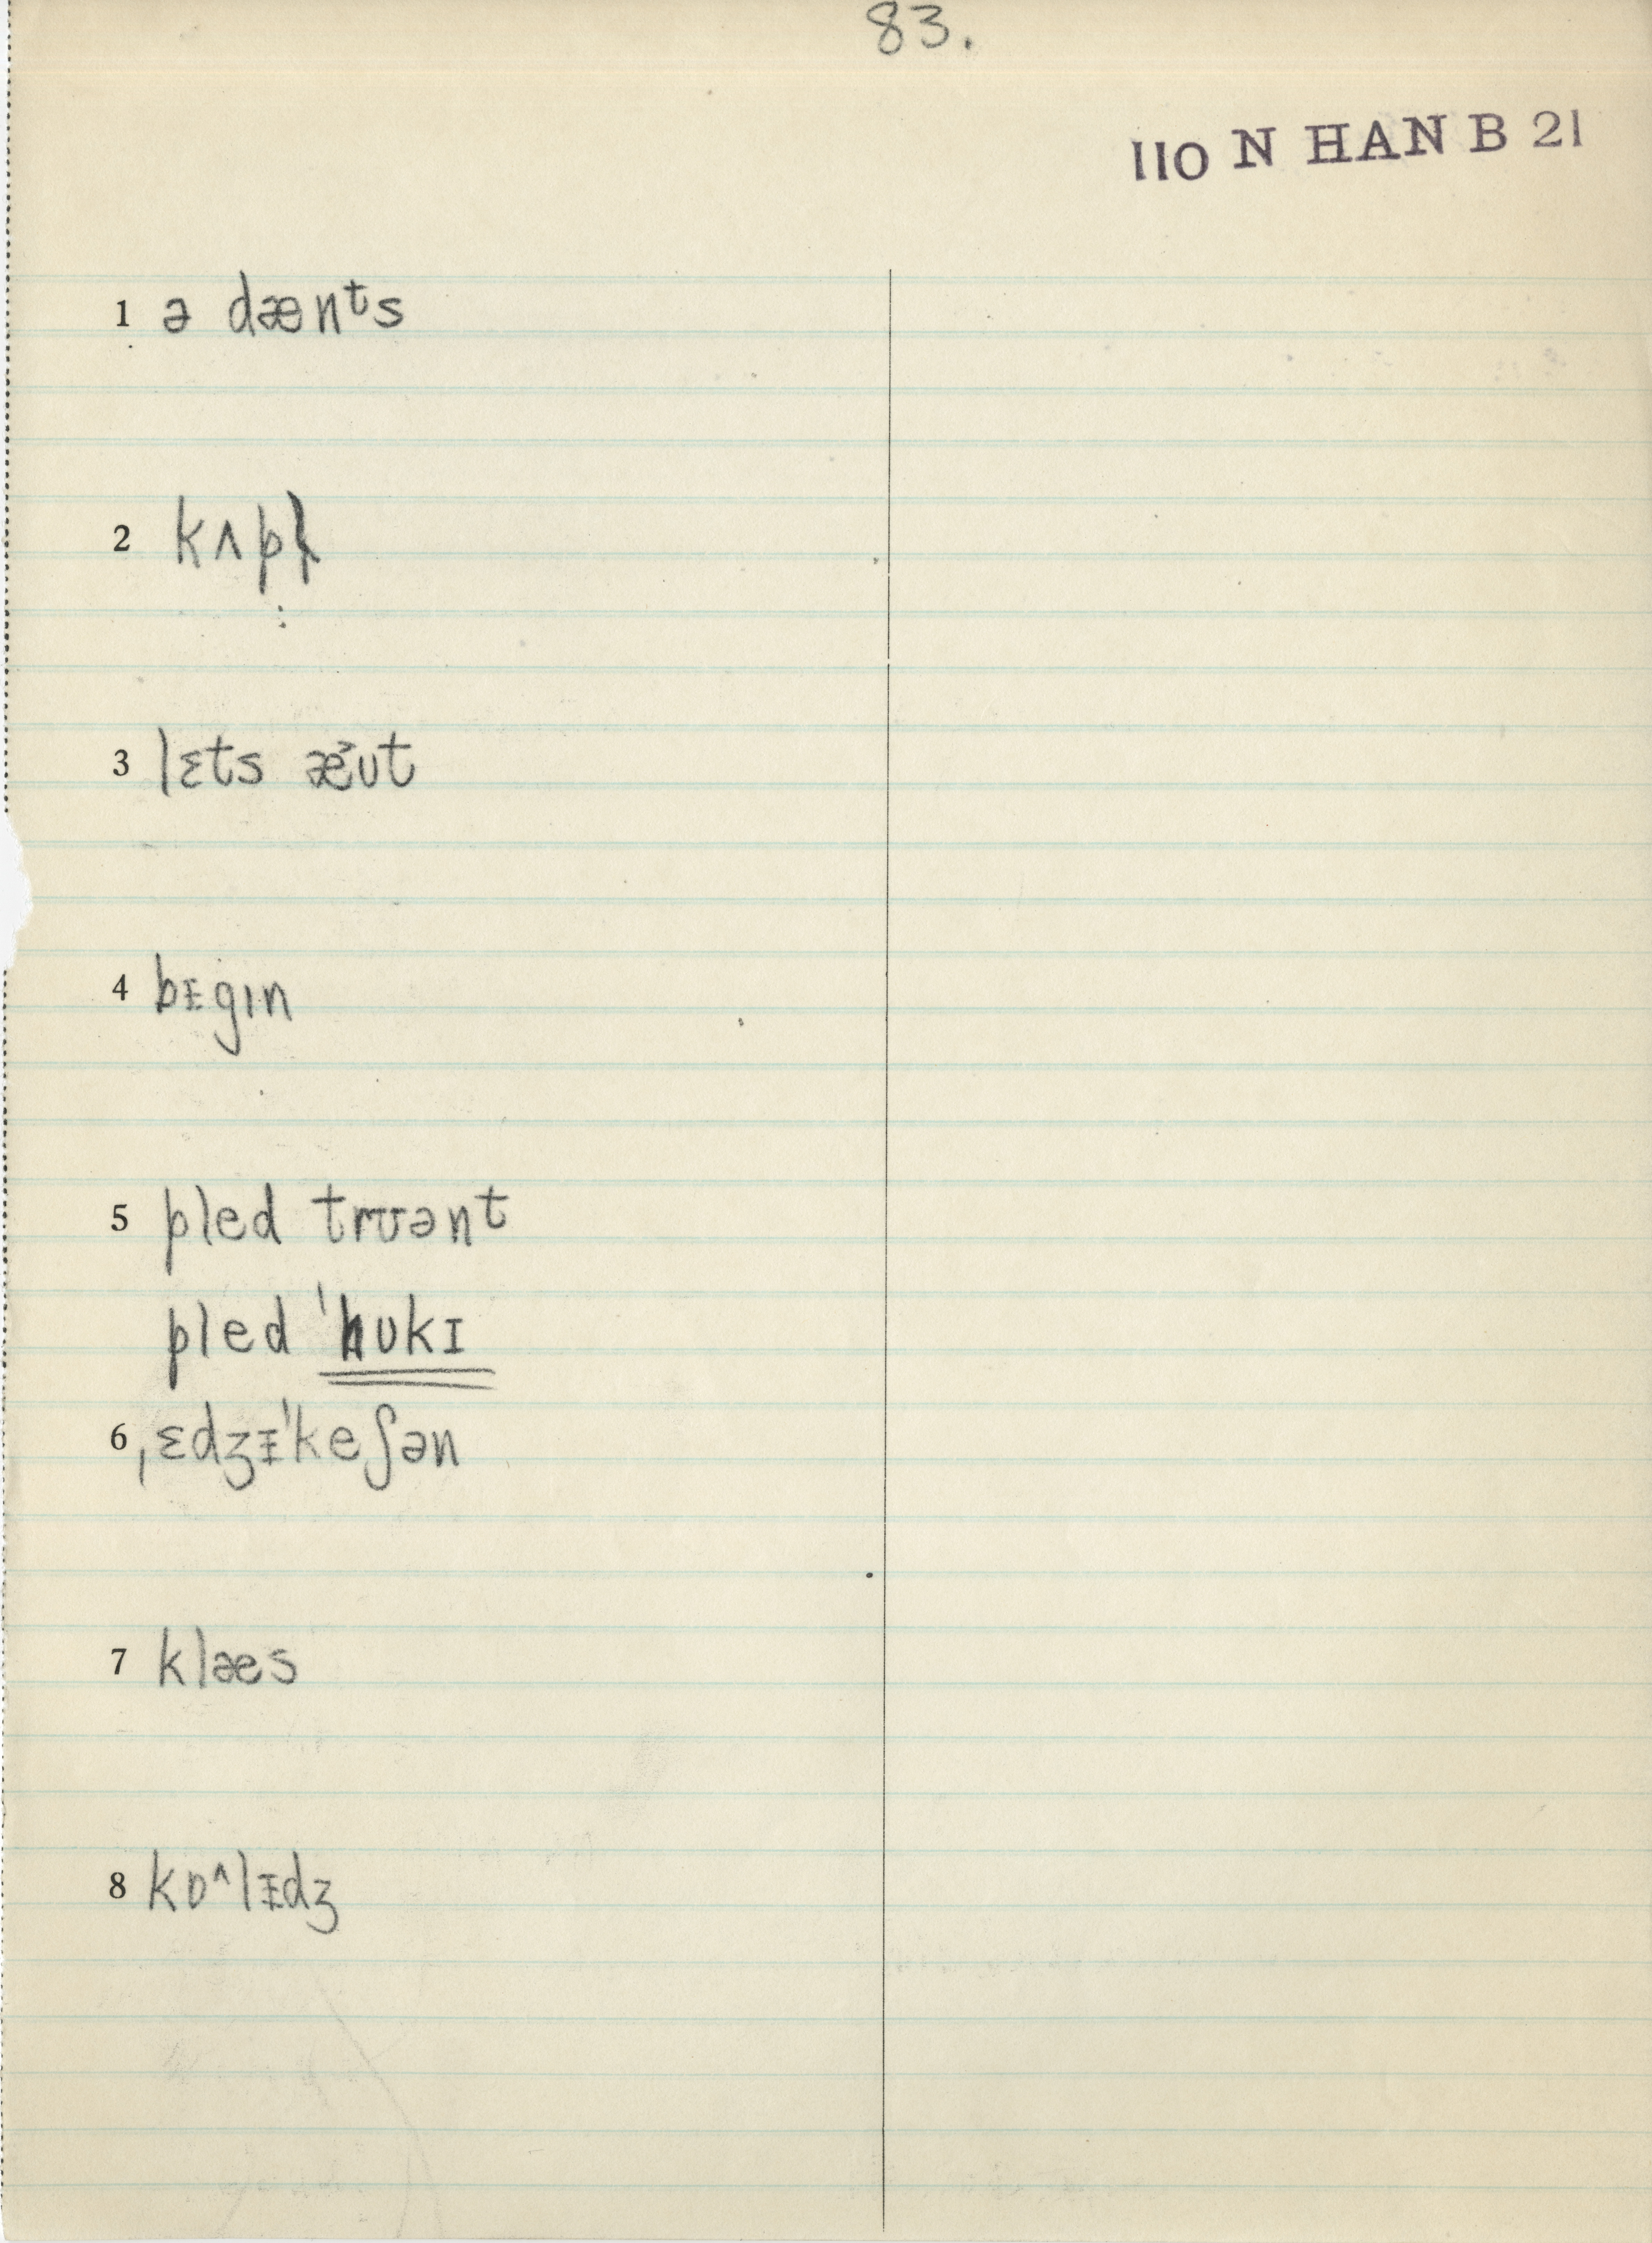 83.
110 N HAN B 21
1 ə dænᵗs
2 kʌpl̩
3 lɛts æ˃ʊt
4 bᵻgɪn
5 pled trʊənt
pled ˈhʊkɪ
6 ˌɛdʒᵻˈkeʃən
7 klæs
8 kɒ˄lᵻdʒ